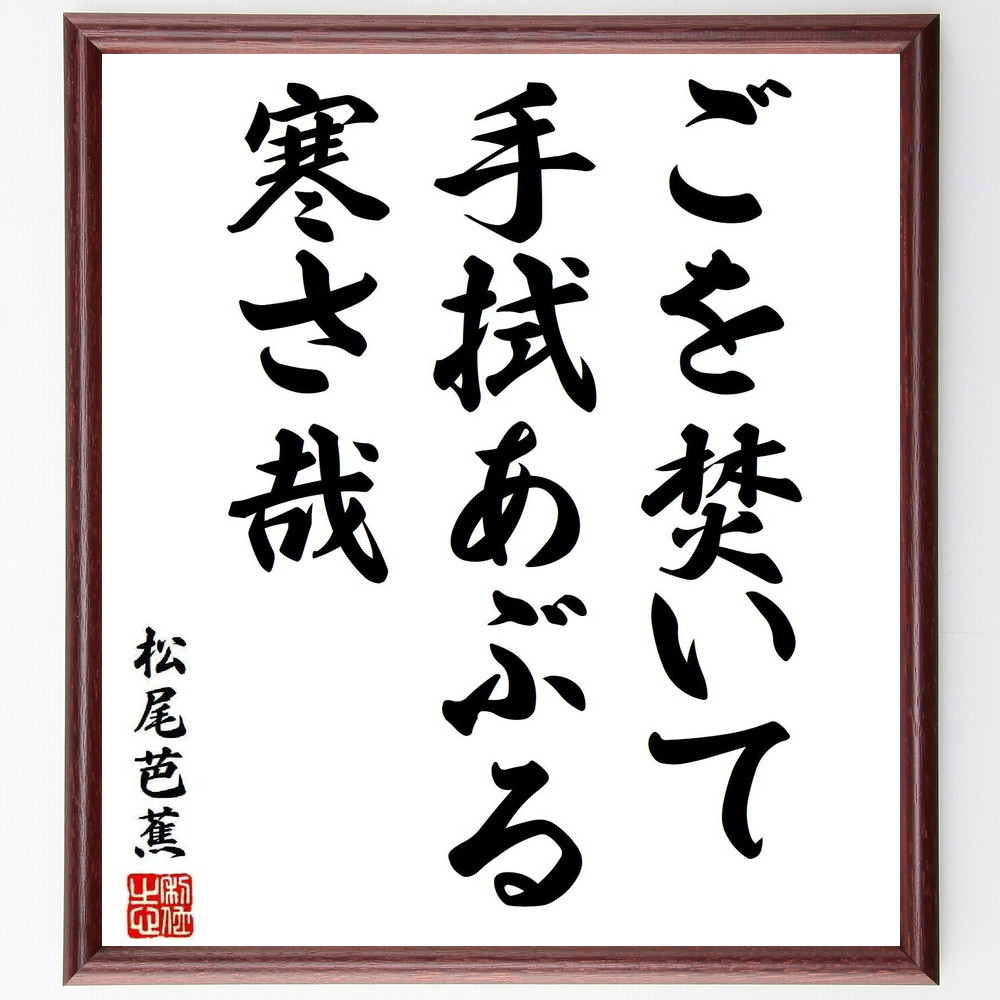 ごを焚いて
手拭あぶる
寒さ哉
松尾芭蕉